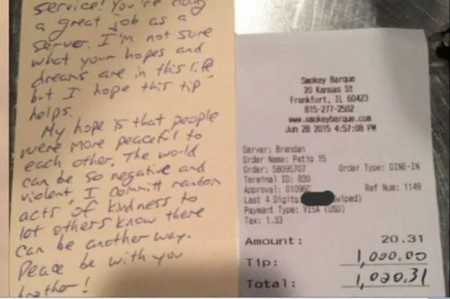 service! You're doing
a great job as a
server. I'm not sure
what your hopes and
dreams are in this life
but I hope this tip
helps.
My hope is that people
were more peaceful to
each other. The world
can be so negative and
violent I committ random
acts of kindness to
lot others know there
can be another way.
Peace be with you
brother!
Smokey Barque
20 Kansas St
Frankfort, IL 60423
815-277-2502
www.smokeybarque.com
Jun 28 2015 4:57:08 PM
Server: Brendan
Order Name: Patio 15
Order: 58095707 Order Type: DINE-IN
Terminal ID: 830
Approval: 01096C Ref Num: 1149
Last 4 Digits
Payment Type: VISA (USD)
Tax: 1.33
Amount: 20.31
Tip: 1,000.00
Total: 1,020.31